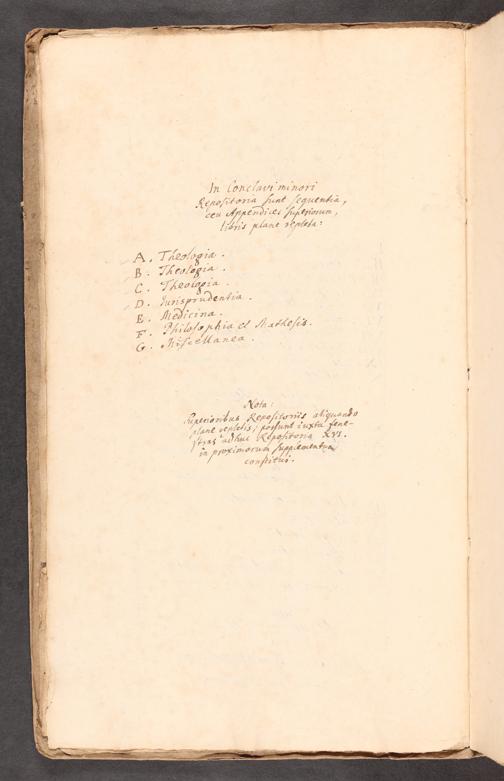 In Conclavi minori
Repositoria sunt sequentia,
ceu Appendices superiorum,
libris plane repleta:
A. Theologia.
B. Theologia.
C. Theologia.
D. Jurisprudentia.
E. Medicina.
F. Philosophia et Mathesis.
G. Miscellanea.
Nota:
Superioribus Repositoriis aliquando
plane repletis, possunt iuxta fene-
stras adhuc Repositoria XVI.
in proximorum supplementum
constitui.